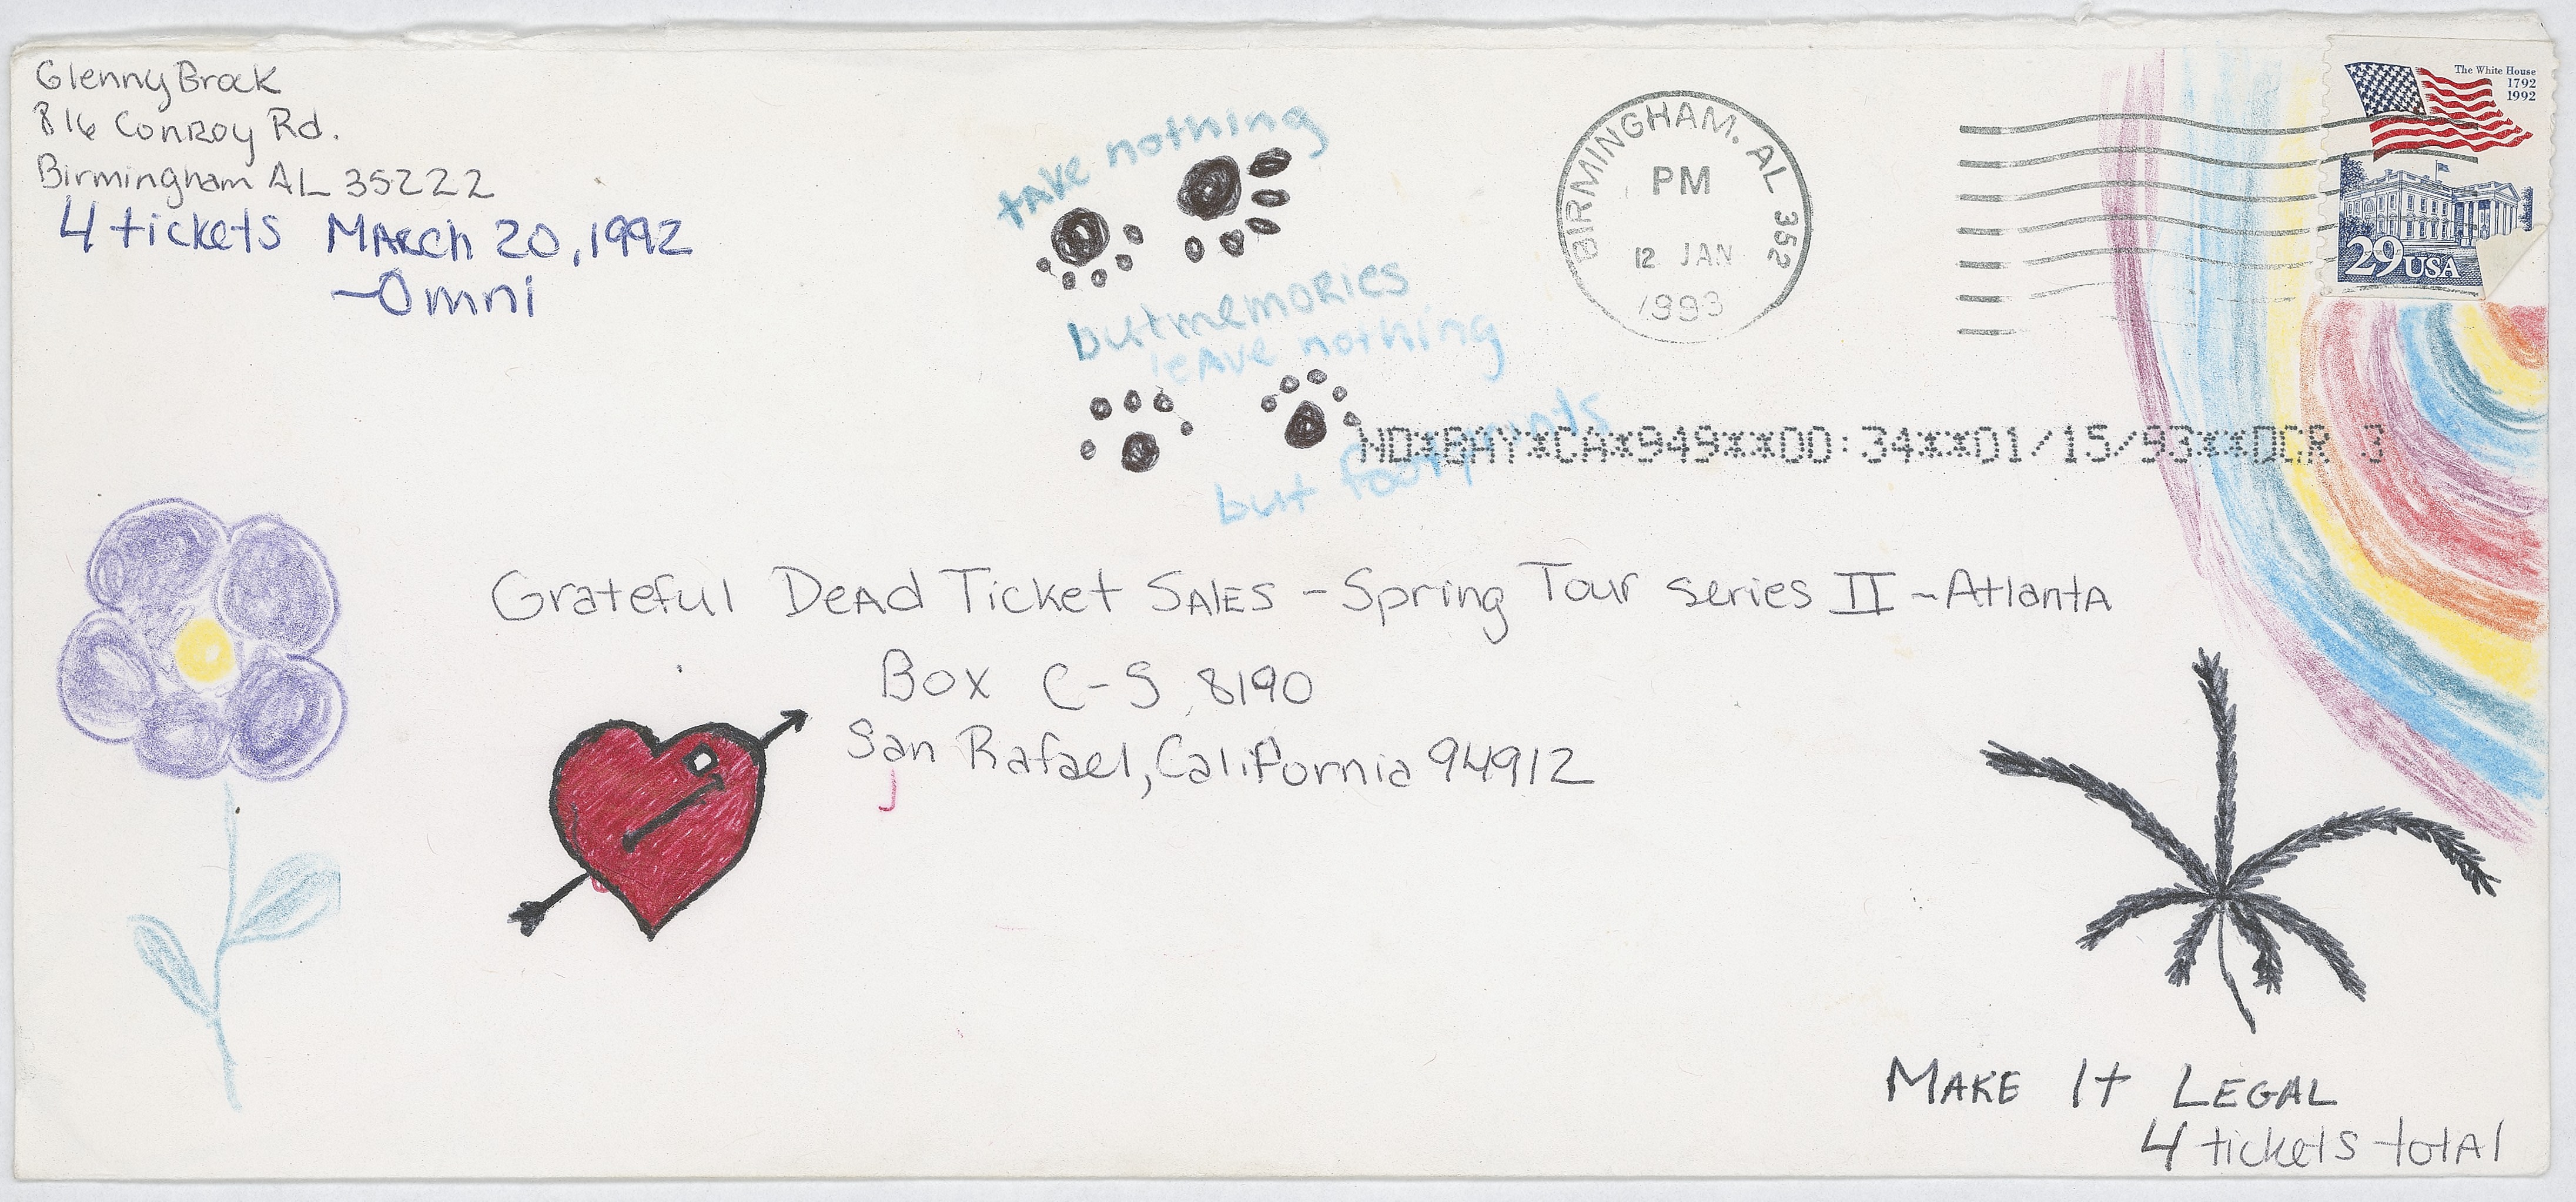 Glenny Brock
816 Conroy Rd.
Birmingham AL 35222
4 tickets March 20, 1992
-Omni
take nothing
but memories
leave nothing
but footprints
BIRMINGHAM, AL 352
PM
12 JAN
1993
The White House
1792
1992
29 USA
ND*BAY*CA*949**00:34**01/15/93**DGR 3
Grateful DeAd Ticket SAlES - Spring Tour series II - AtlantA
Box C-S 8190
San Rafael, California 94912
MAKE It LEGAL
4 tickets totAl